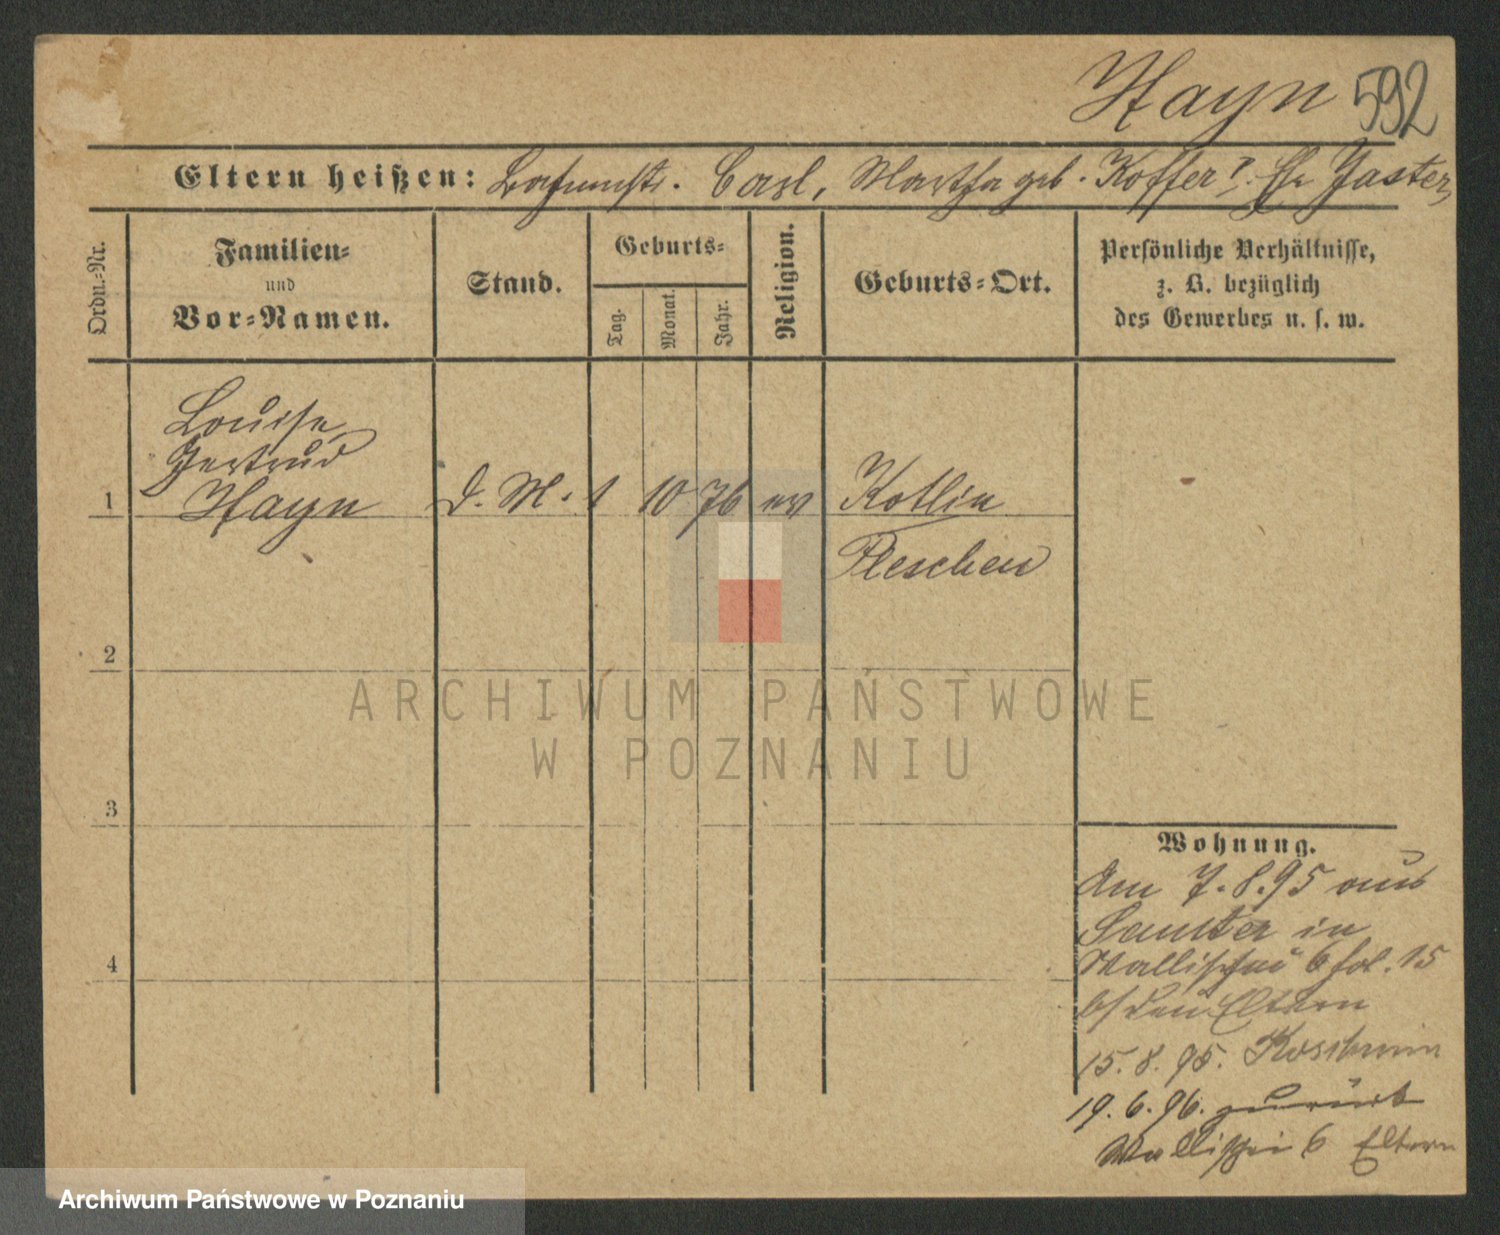 Hayn 592
Eltern heißen: Carl, Martha geb. Koffer
Ordn.-Nr.
Familien-
und
Vor-Namen.
Stand.
Geburts-
Tag.
Monat.
Jahr.
Religion.
Geburts-Ort.
Persönliche Verhältnisse,
z. B. bezüglich
des Gewerbes u. s. w.
Louise
Gertrud
1 Hayn d. M. 1 10 76 ev Kotlin
Pleschen
2
3
4
Wohnung.
Am 7.8.95 aus
Samter in
Wallischei 6 15
Eltern
15.8.95. Koschmin
19.6.96. zurück
Wallischei 6 Eltern
ARCHIWUM PAŃSTWOWE
W POZNANIU
Archiwum Państwowe w Poznaniu